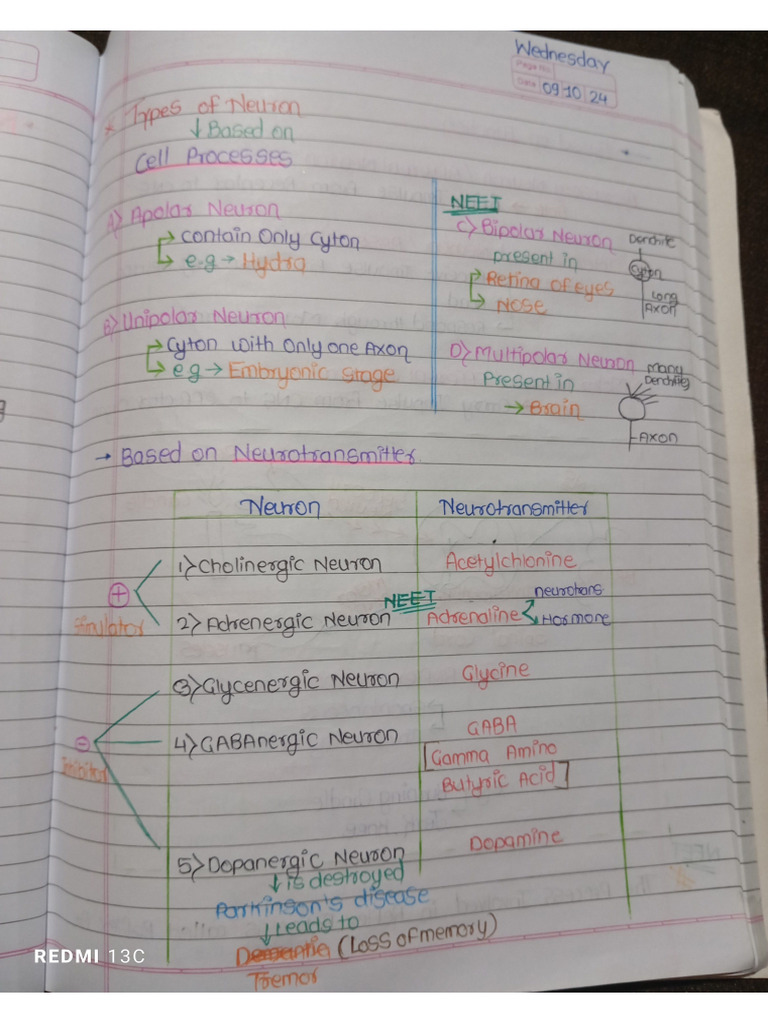 Wednesday
Page No.
Date 09 10 24
* Types of Neuron
↓ Based on
Cell Processes
A) Apolar Neuron
→ Contain Only Cyton
→ e.g → Hydra
B) Unipolar Neuron
→ Cyton with Only one Axon
→ e g → Embryonic stage
NEET
C) Bipolar Neuron
present in
→ Retina of eyes
→ Nose
Dendrite
Cyton
Long
Axon
D) Multipolar Neuron
Present in
→ Brain
many
Dendrites
Axon
→ Based on Neurotransmitter
Neuron Neurotransmitter
+
Stimulator
1) Cholinergic Neuron Acetylchionine
NEET
2) Adrenergic Neuron Adrenaline neurotrans
Hormone
3) Glycenergic Neuron Glycine
-
inhibitor
4) GABAnergic Neuron GABA
[Gamma Amino
Butyric Acid]
5) Dopanergic Neuron Dopamine
↓ is destroyed
Parkinson's disease
↓ Leads to
(Loss of memory)
Tremor
NEET
REDMI 13C